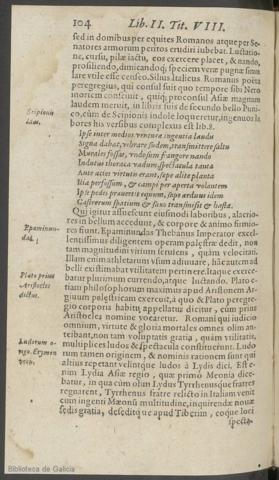 104 Lib. II. Tit. VIII.
sed in domibus per equites Romanos atque per Se-
natores armorum peritos erudiri iubebat. Luctatio-
ne, cursu, pilæ iactu, eos exercere placet, & nando,
prosiliendo, dimicandoq; speciem veræ pugnæ simu
lare vtile esse censeo. Silius Italicus Romanus poeta
peregregius, qui consul fuit quo tempore sibi Nero
mortem consciuit, quiq; proconsul Asiæ magnam
laudem meruit, in libris suis de secundo bello Puni-
co, cùm de Scipionis indole loqueretur, ingenuos la
bores his versibus complexus est lib. 8.
Scipionis
Ipse inter medios venturæ ingentia laudis
Signa dabat, vibrare sudem, transmittere saltu
Murales fossas, vndosum frangere nando
Indutus thoraca vadum, spectacula tanta
Ante acies virtutis erant, sæpe alite planta
Ilia perfossum, & campi per aperta volantem
Ipse pedes præuertit equum, sæpe arduus idem
Castrorum spatium & saxo transmisit & hasta.
Qui igitur assuescunt eiusmodi laboribus, alacrio-
res in bellum accedunt, & corpore & animo firmio-
res fiunt. Epaminundas Thebanus Imperator excel-
lentissimus diligentem operam palæstræ dedit, non
tam magnitudini virium seruiens, quàm velocitati.
Illam enim athletarum vsum adiuuare, hãc autem ad
belli existimabat vtilitatem pertinere. Itaque exerce-
batur plurimum currendo, atque luctando. Plato e-
tiam philosophorum maximus apud Aristonem Ar-
giuum palæstricam exercuit, à quo & Plato peregre-
gio corporis habitu appellatus dicitur, cùm prius
Aristocles nomine vocaretur. Romani qui iudicio
omnium, virtute & gloria mortales omnes olim an-
teibant, non tam voluptatis gratia, quàm vtilitatis,
multiplices ludos & spectacula constituerunt. Ludo
rum tamen originem, & nominis rationem sunt qui
altius repetant velintque ludos à Lydis dici. Est e-
nim Lydia Asiæ regio, quæ prius Meonia dice-
batur, in qua cùm olim Lydus Tyrrhenusque fratres
regnarent, Tyrrhenus fratre relicto in Italiam venit
cum ingenti Mæonũ multitudine, inquirendæ nouæ
sedis gratia, deseditque apud Tiberim, eoque loci
Epaminun-
das.
Plato prius
Aristocles
dictus.
Ludorum o-
rigo. Etymon
specta-
Biblioteca de Galicia